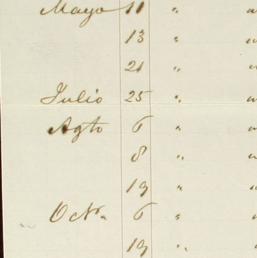 Mayo 11 " "
13 " "
21 " "
Julio 25 " "
Agto 6 " "
8 " "
19 " "
Octe. 6 " "
19 " "